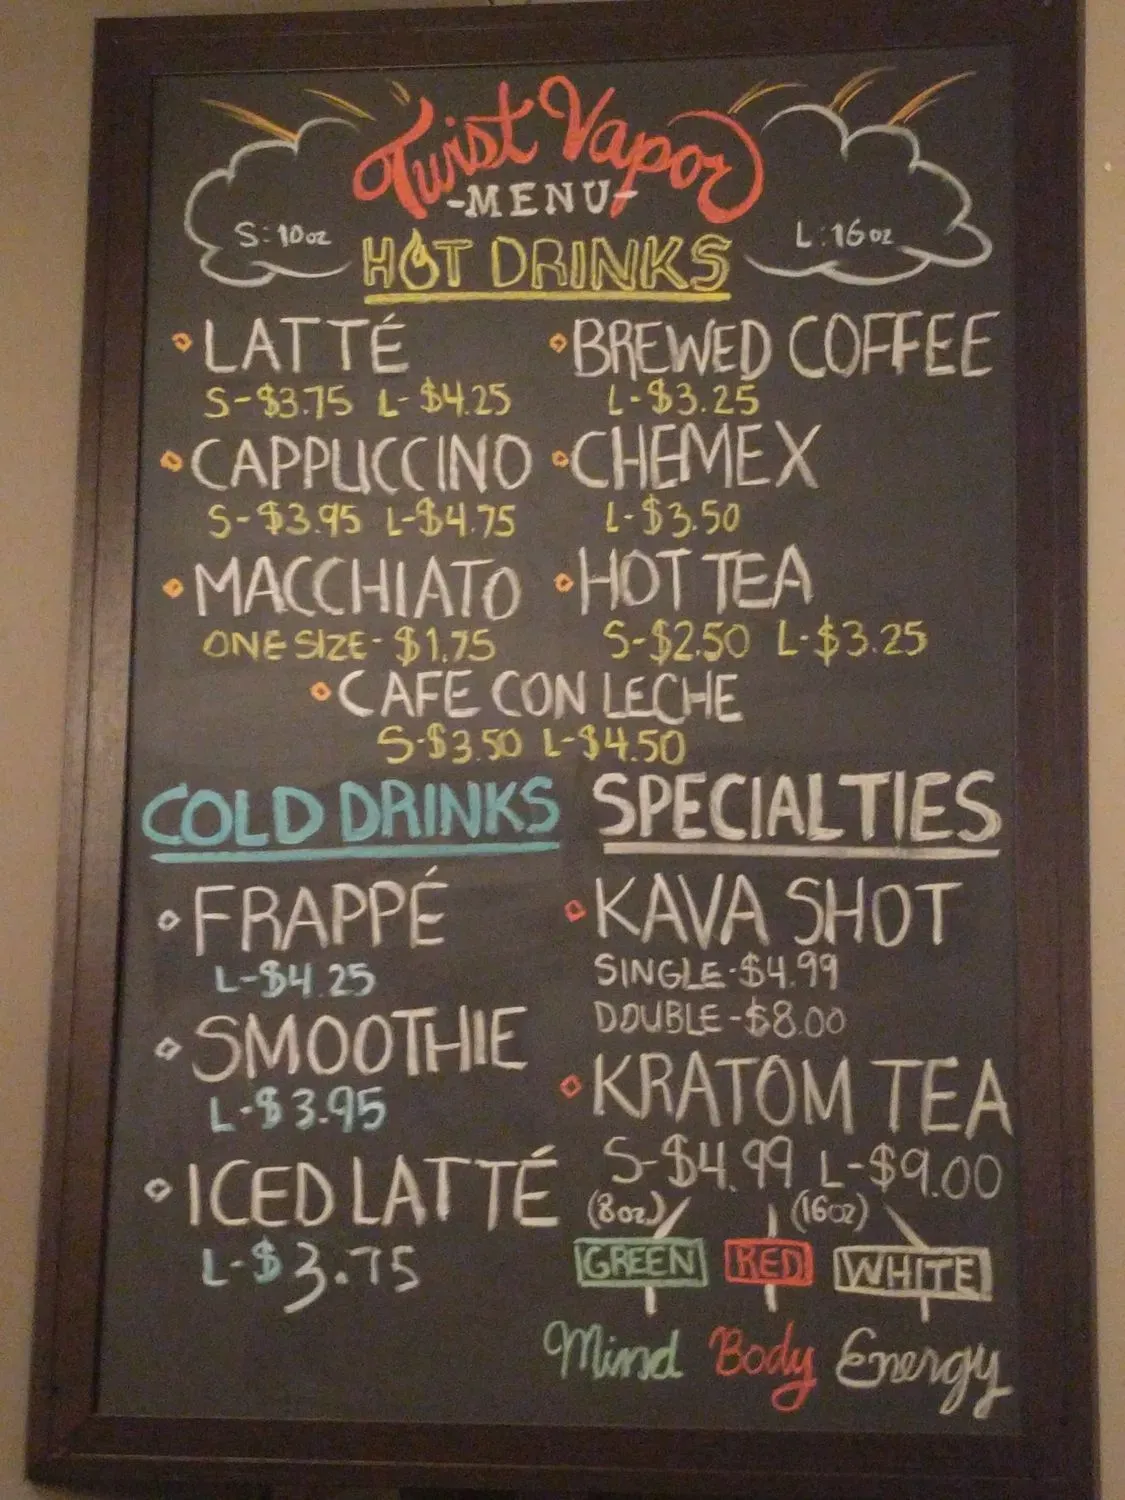 Twist Vapor
-MENU-
S: 10oz
L: 16oz
HOT DRINKS
LATTÉ
S-$3.75 L-$4.25
BREWED COFFEE
L-$3.25
CAPPUCCINO
S-$3.95 L-$4.75
CHEMEX
L-$3.50
MACCHIATO
ONE SIZE-$1.75
HOT TEA
S-$2.50 L-$3.25
CAFE CON LECHE
S-$3.50 L-$4.50
COLD DRINKS
FRAPPÉ
L-$4.25
SMOOTHIE
L-$3.95
ICED LATTÉ
L-$3.75
SPECIALTIES
KAVA SHOT
SINGLE-$4.99
DOUBLE-$8.00
KRATOM TEA
S-$4.99 L-$9.00
(8oz.) (16oz)
GREEN RED WHITE
Mind Body Energy